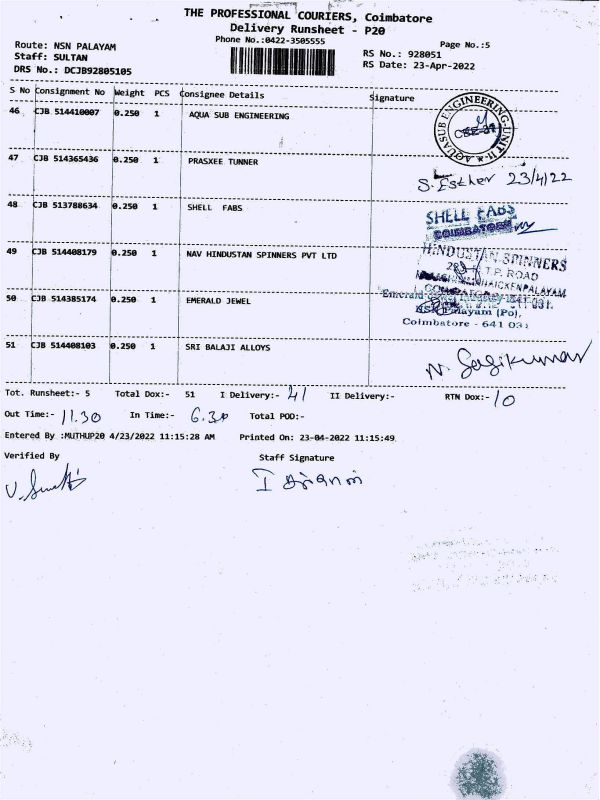 THE PROFESSIONAL COURIERS, Coimbatore
Delivery Runsheet - P20
Phone No.:0422-3505555
Page No.:5
Route: NSN PALAYAM
Staff: SULTAN
DRS No.: DCJB92805105
RS No.: 928051
RS Date: 23-Apr-2022
S No Consignment No Weight PCS Consignee Details Signature
46 CJB 514410007 0.250 1 AQUA SUB ENGINEERING
AQUASUB ENGINEERING-UNIT II
47 CJB 514365436 0.250 1 PRASXEE TUNNER
S. Esther 23/4/22
48 CJB 513788634 0.250 1 SHELL FABS
SHELL FABS
COIMBATORE
49 CJB 514408179 0.250 1 NAV HINDUSTAN SPINNERS PVT LTD
HINDUSTAN SPINNERS
T.P. ROAD
50 CJB 514385174 0.250 1 EMERALD JEWEL
Emerald
NSN Palayam (Po),
Coimbatore - 641 031
51 CJB 514408103 0.250 1 SRI BALAJI ALLOYS
Tot. Runsheet:- 5 Total Dox:- 51 I Delivery:- 41 II Delivery:- RTN Dox:- 10
Out Time:- 11.30 In Time:- 6.30 Total POD:-
Entered By :MUTHUP20 4/23/2022 11:15:28 AM Printed On: 23-04-2022 11:15:49
Verified By Staff Signature